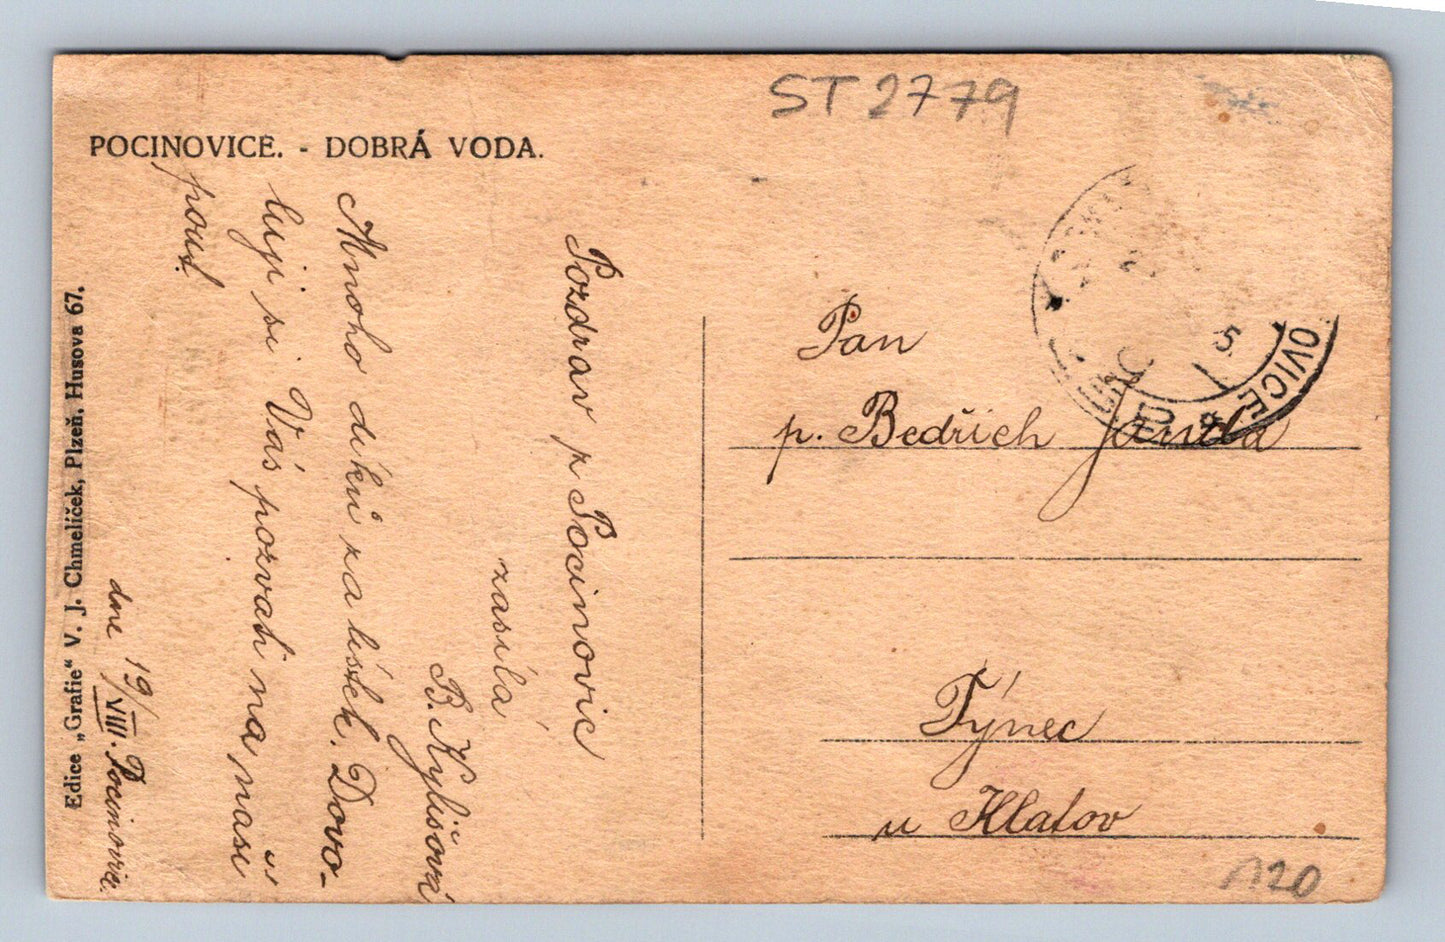 ST 2779
POCINOVICE. - DOBRÁ VODA.
Pozdrav z Pocinovic
zasílá
B. Kylišová
Mnoho díků za lístek. Dovo-
luji si Vás pozvati na naši
pouť.
dne 19/VIII. Pocinovice.
Edice „Grafie“ V. J. Chmelíček, Plzeň, Husova 67.
OVICE
5
Pan
p. Bedřich Janda
Týnec
u Klatov
120